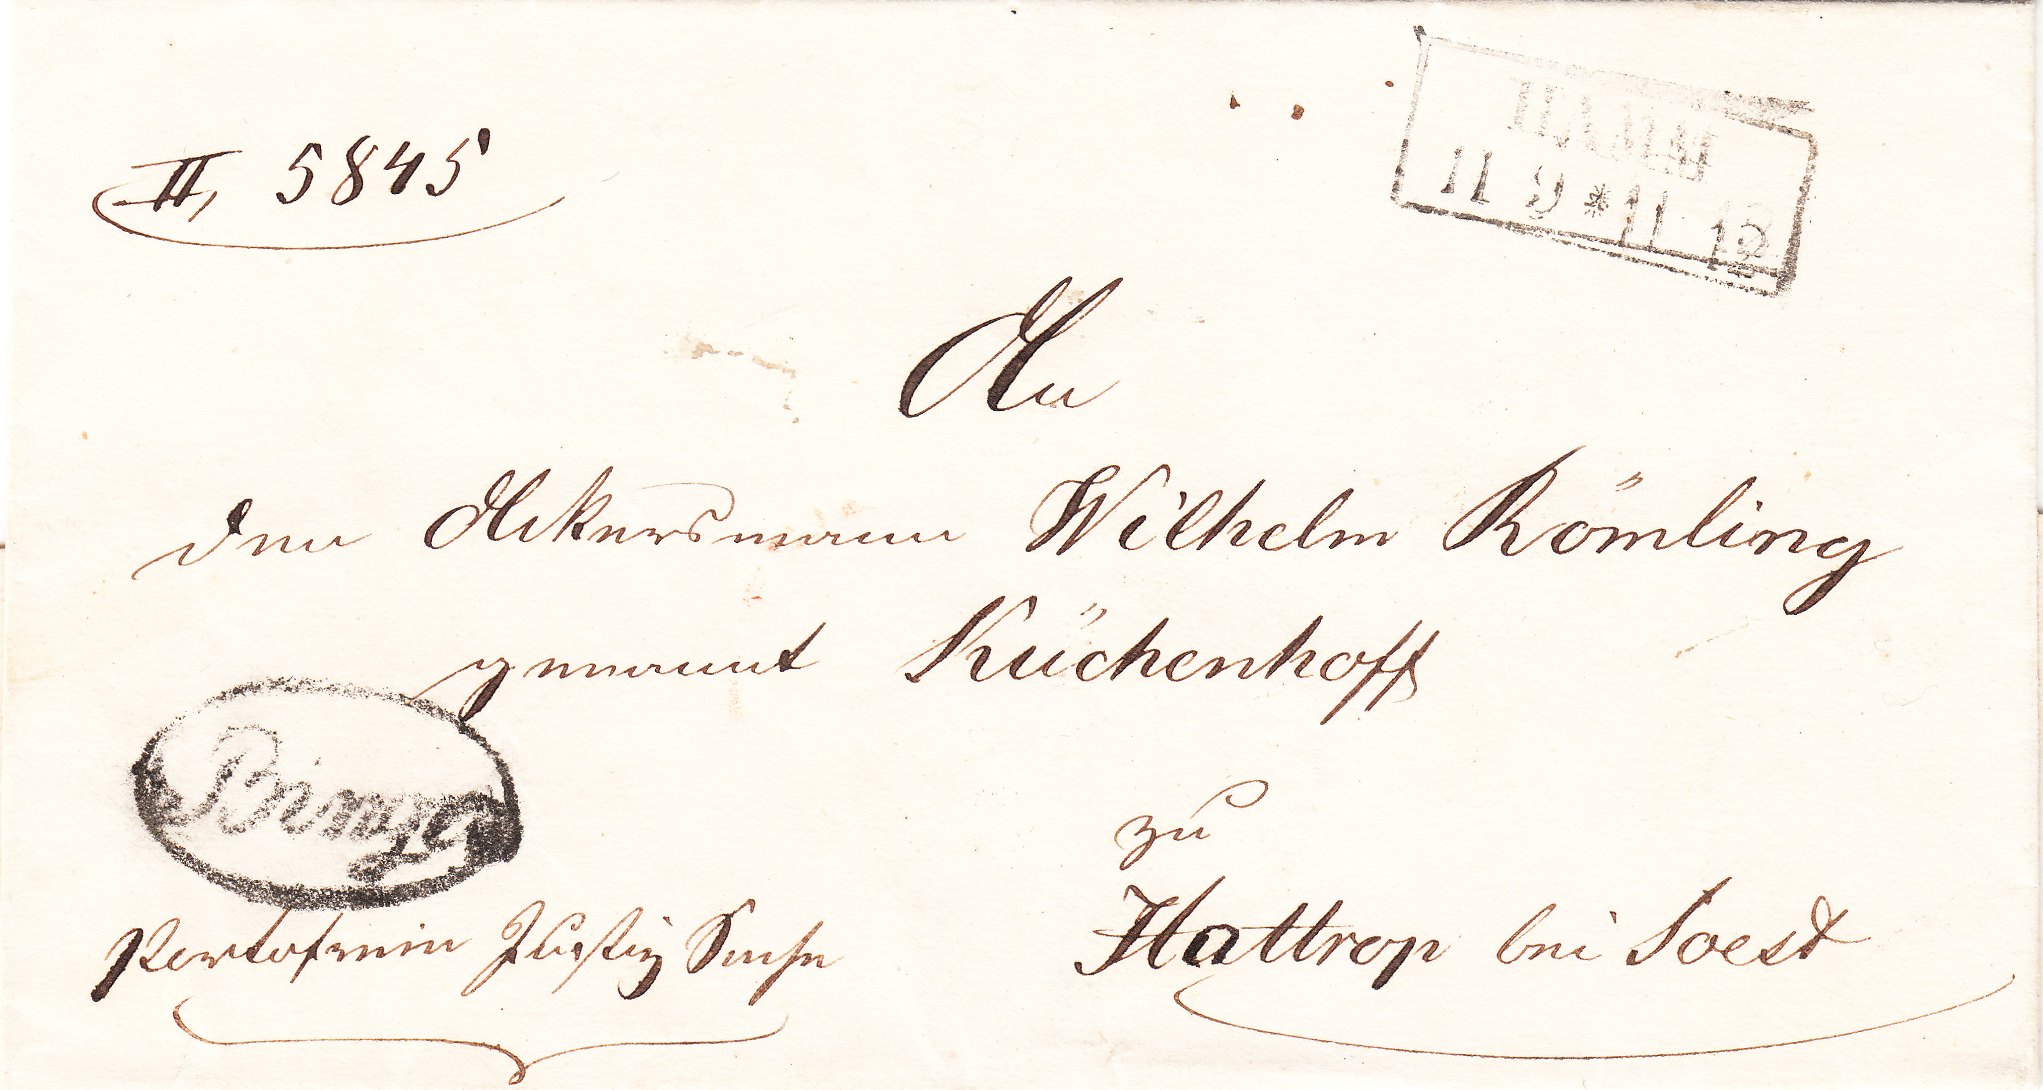 HAMM
11 9 * 11 12
II, 5845
An
den Ackersmann Wilhelm Römling
genannt Küchenhoff
zu
Hattrop bei Soest
portofreie Justiz Sache